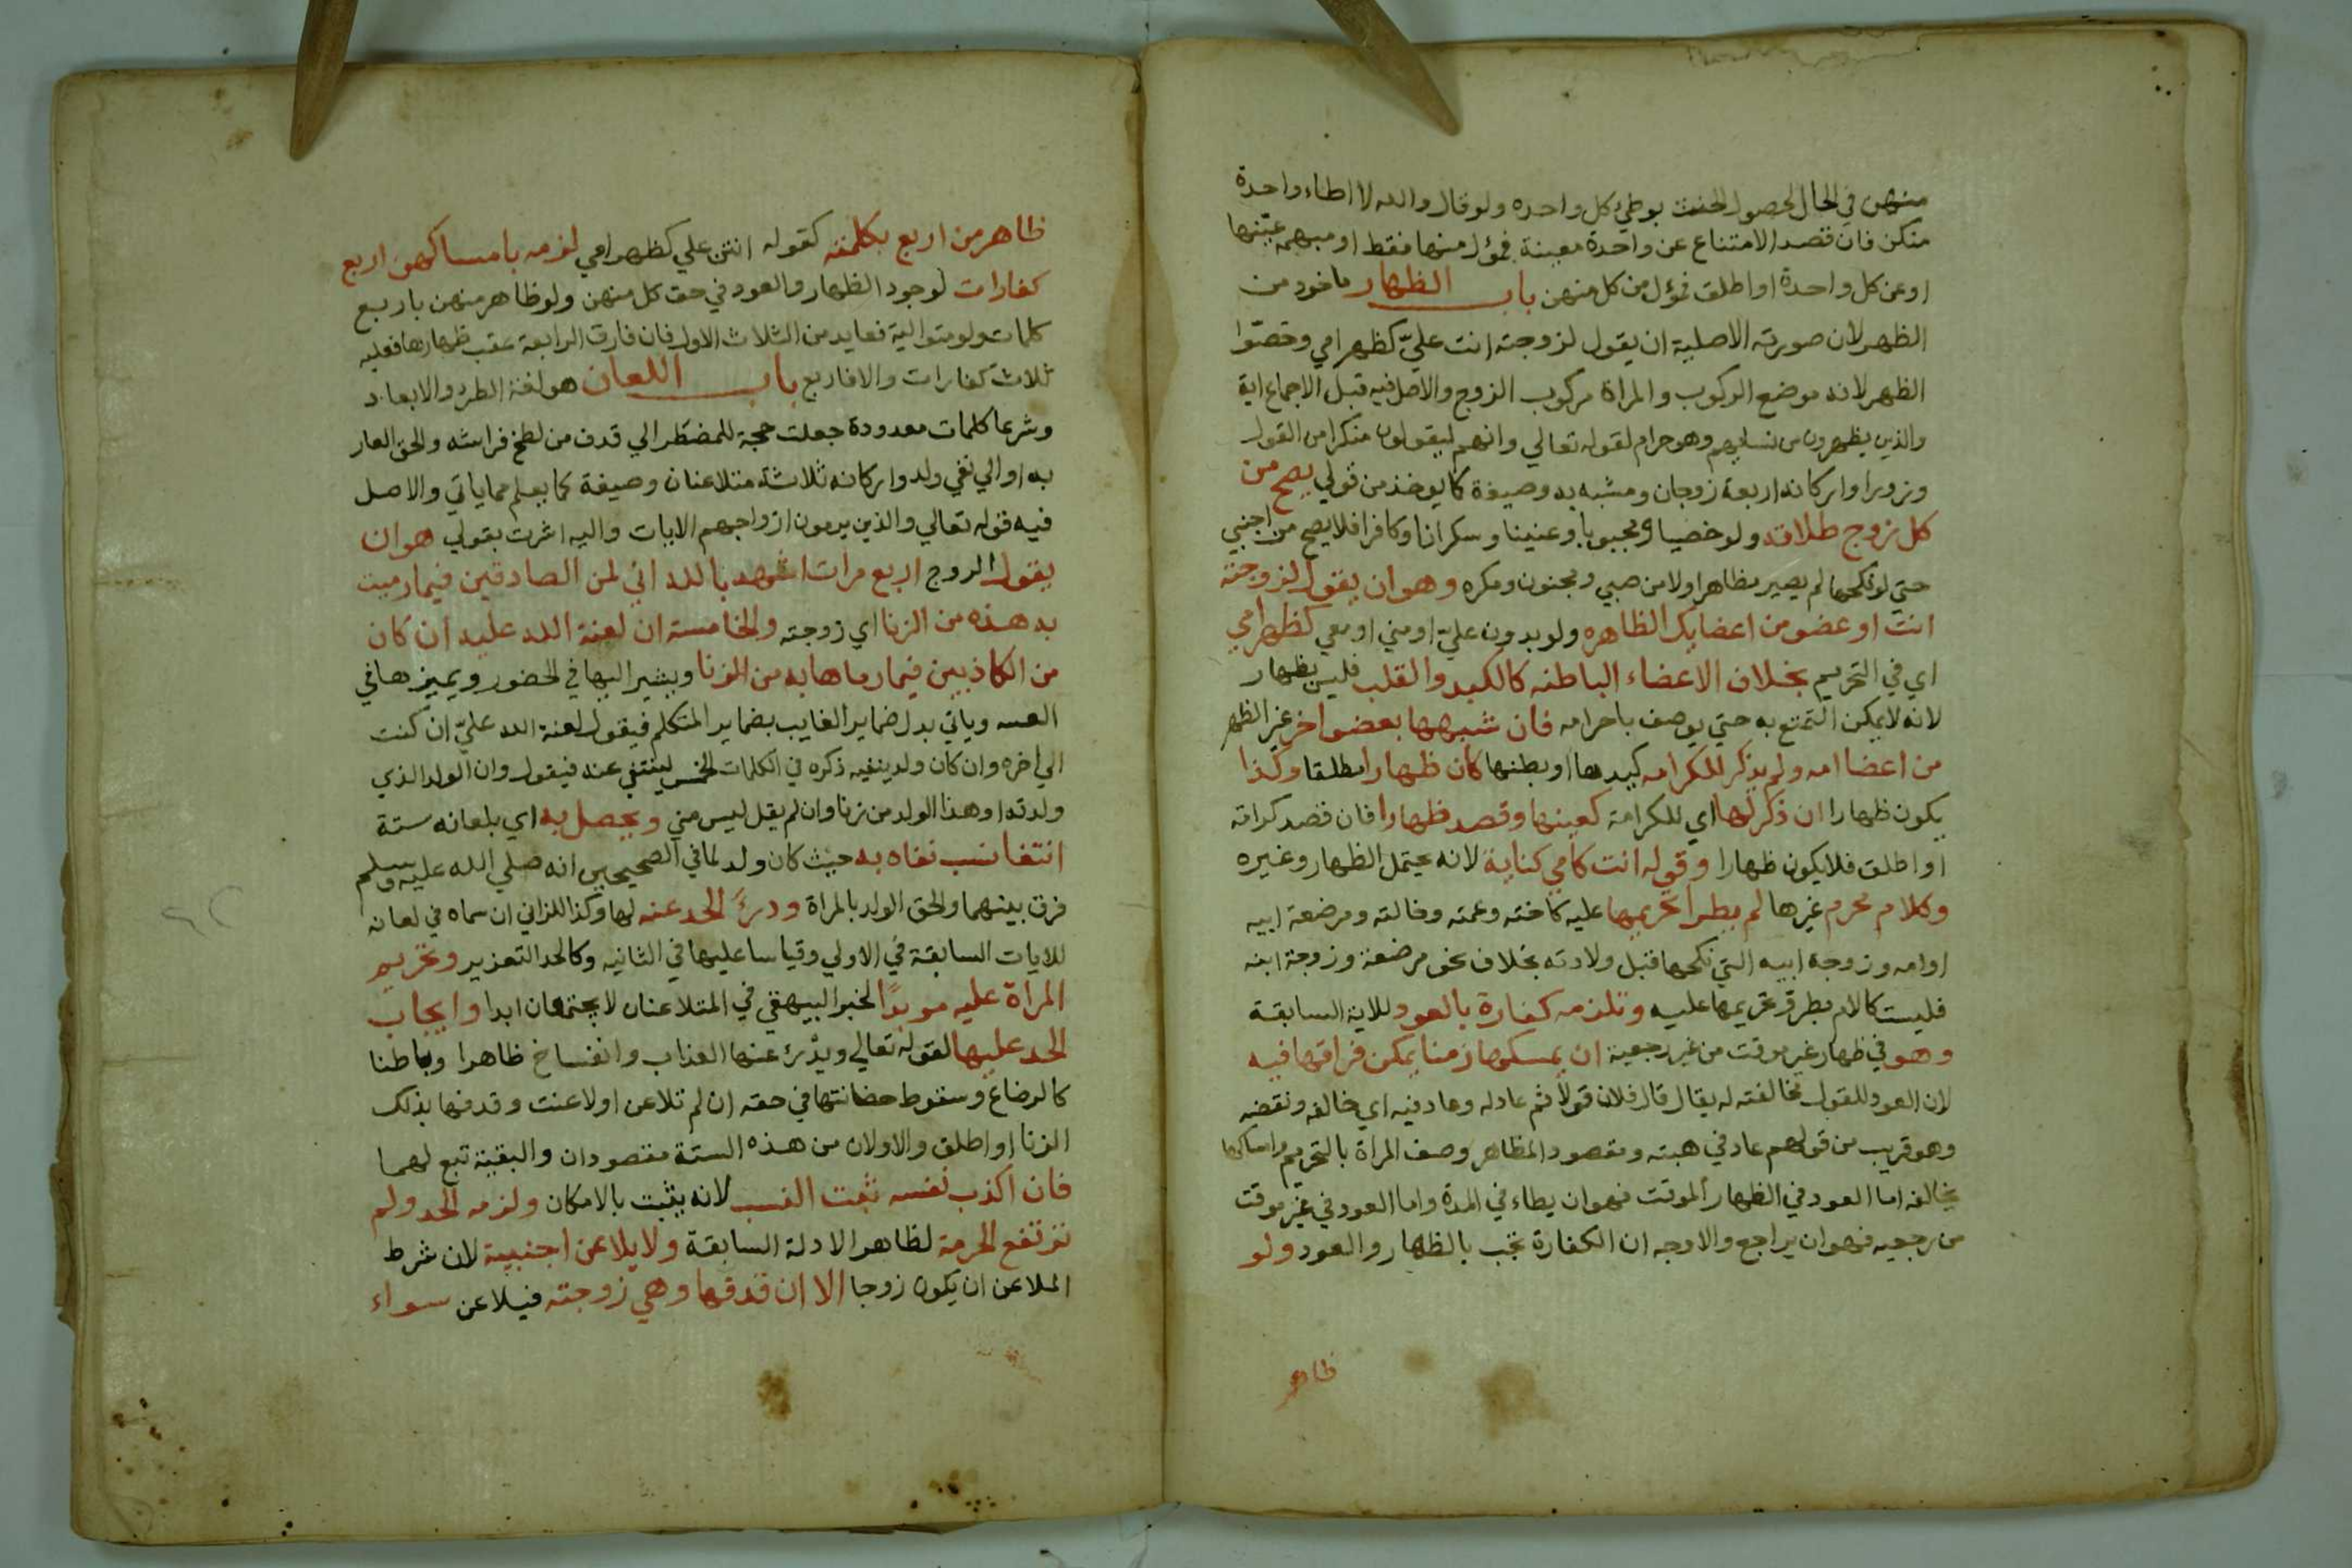 منهن في الحال لحصول الحنث بوطي كل واحده ولو قال والله لا اطاء واحدة
منكن فان قصد الامتناع عن واحدة معينة فمؤل منها فقط او مبهمه عيّنها
او عن كل واحدة او اطلق فمؤل من كل منهن باب الظهار ماخود من
الظهر لان صورته الاصلية ان يقول لزوجته انت عليّ كظهر امي وخصّوا
الظهر لانه موضع الركوب والمراة مركوب الزوج والاصل فيه قبل الاجماع اية
والذين يظهرون من نسايهم وهو حرام لقوله تعالي وانهم ليقولون منكرا من القول
وزورا واركانه اربعة زوجان ومشبه به وصيغة كما يوخذ من قولي يصح من
كل زوج طلاقه ولو خصيا ومجبوبا وعنينا وسكرانا وكافرا فلا يصح من اجنبي
حتي لو نكحها لم يصير مظاهرا ولا من صبي ومجنون ومكره وهو ان يقول لزوجته
انت او عضو من اعضايك الظاهره ولو بدون عليّ او مني او معي كظهر امي
اي في التحريم بخلاف الاعضاء الباطنه كالكبد والقلب فليس بظهار
لانه لا يمكن التمتع به حتي يوصف باحرامه فان شبهها بعضو اخر غير الظهر
من اعضا امه ولم يذكر للكرامه كيدها او بطنها كان ظهارا مطلقا وكذا
يكون ظهارا ان ذكر لها اي للكرامة كعينها وقصد ظهارا فان قصد كرامة
او اطلق فلا يكون ظهارا وقوله انت كامي كناية لانه يحتمل الظهار وغيره
وكلام محرم غيرها لم يطرا تحريمها عليه كاخته وعمته وخالته ومرضعة ابيه
او امه وزوجة ابيه التي نكحها قبل ولادته بخلاف نحو مرضعة وزوجة ابنه
فليست كالام بطرو تحريمها عليه وتلزمه كفارة بالعود للاية السابقة
وهو في ظهار غير موقت من غير رجعية ان يمسكها زمنا يمكن فراقها فيه
لان العود للقول مخالفته له يقال قال فلان قولا ثم عاد له وعاد فيه اي خالفه ونقضه
وهو قريب من قولهم عاد في هبته ومقصود المظاهر وصف المراة بالتحريم وامساكها
يخالفه اما العود في الظهار الموقت فهو ان يطاء في المدة واما العود في غير موقت
من رجعيه فهو ان يراجع والاوجه ان الكفارة تجب بالظهار والعود ولو
ظاهر
ظاهر من اربع بكلمة كقوله انتن علي كظهر امي لزمه بامساكهن اربع
كفارات لوجود الظهار والعود في حق كل منهن ولو ظاهر منهن باربع
كلمات ولو متوالية فعايد من الثلاث الاول فان فارق الرابعة عقب ظهارها فعليه
ثلاث كفارات والا فاربع باب اللعان هو لغة الطرد والابعاد
وشرعا كلمات معدودة جعلت حجة للمضطر الي قدف من لطخ فراشه والحق العار
به او الي نفي ولد واركانه ثلاثة متلاعنان وصيغة كما يعلم مما ياتي والاصل
فيه قوله تعالي والذين يرمون ازواجهم الايات واليه اشرت بقولي هو ان
يقول الزوج اربع مرات اشهد بالله اني لمن الصادقين فيما رميت
به هذه من الزنا اي زوجته والخامسة ان لعنة الله عليه ان كان
من الكاذبين فيما رماها به من الزنا ويشير اليها في الحضور ويميزها في
الغيبه وياتي بدل ضماير الغايب بضماير المتكلم فيقول لعنة الله عليّ ان كنت
الي اخره وان كان ولد ينفيه ذكره في الكلمات الخمس لينتفي عنه فيقول وان الولد الذي
ولدته او هذا الولد من زنا وان لم يقل ليس مني ويحصل به اي بلعانه ستة
انتفا نسب نفاه به حيث كان ولد لما في الصحيحين انه صلي الله عليه وسلم
فرق بينهما والحق الولد بالمراة ودرئ الحد عنه لها وكذا للزاني ان سماه في لعانه
للايات السابقة في الاولي وقياسا عليها في الثانيه وكالحد التعزير وتحريم
المراة عليه موبدًا لخبر البيهقي في المتلاعنان لا يجتمعان ابدا وايجاب
الحد عليها لقوله تعالي ويدرئ عنها العذاب وانفساخ ظاهرا وباطنا
كالرضاع وسقوط حضانتها في حقه ان لم تلاعن او لاعنت وقدفها بذلك
الزنا او اطلق والاولان من هذه الستة مقصودان والبقية تبع لهما
فان اكذب نفسه ثبت النسب لانه يثبت بالامكان ولزمه الحد ولم
ترتفع الحرمة لظاهر الادلة السابقة ولا يلاعن اجنبية لان شرط
الملاعن ان يكون زوجا الا ان قدفها وهي زوجته فيلاعن سواء